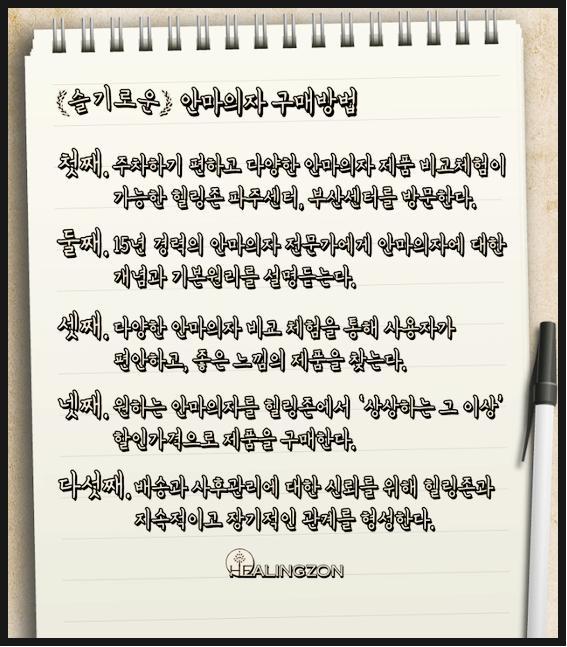 (슬기로운) 안마의자 구매방법
첫째, 주차하기 편하고 다양한 안마의자 제품 비교체험이
가능한 힐링존 파주센터, 부산센터를 방문한다.
둘째, 15년 경력의 안마의자 전문가에게 안마의자에 대한
개념과 기본원리를 설명듣는다.
셋째, 다양한 안마의자 비교 체험을 통해 사용자가
편안하고, 좋은 느낌의 제품을 찾는다.
넷째, 원하는 안마의자를 힐링존에서 '상상하는 그 이상'
할인가격으로 제품을 구매한다.
다섯째, 배송과 사후관리에 대한 신뢰를 위해 힐링존과
지속적이고 장기적인 관계를 형성한다.
HEALINGZON